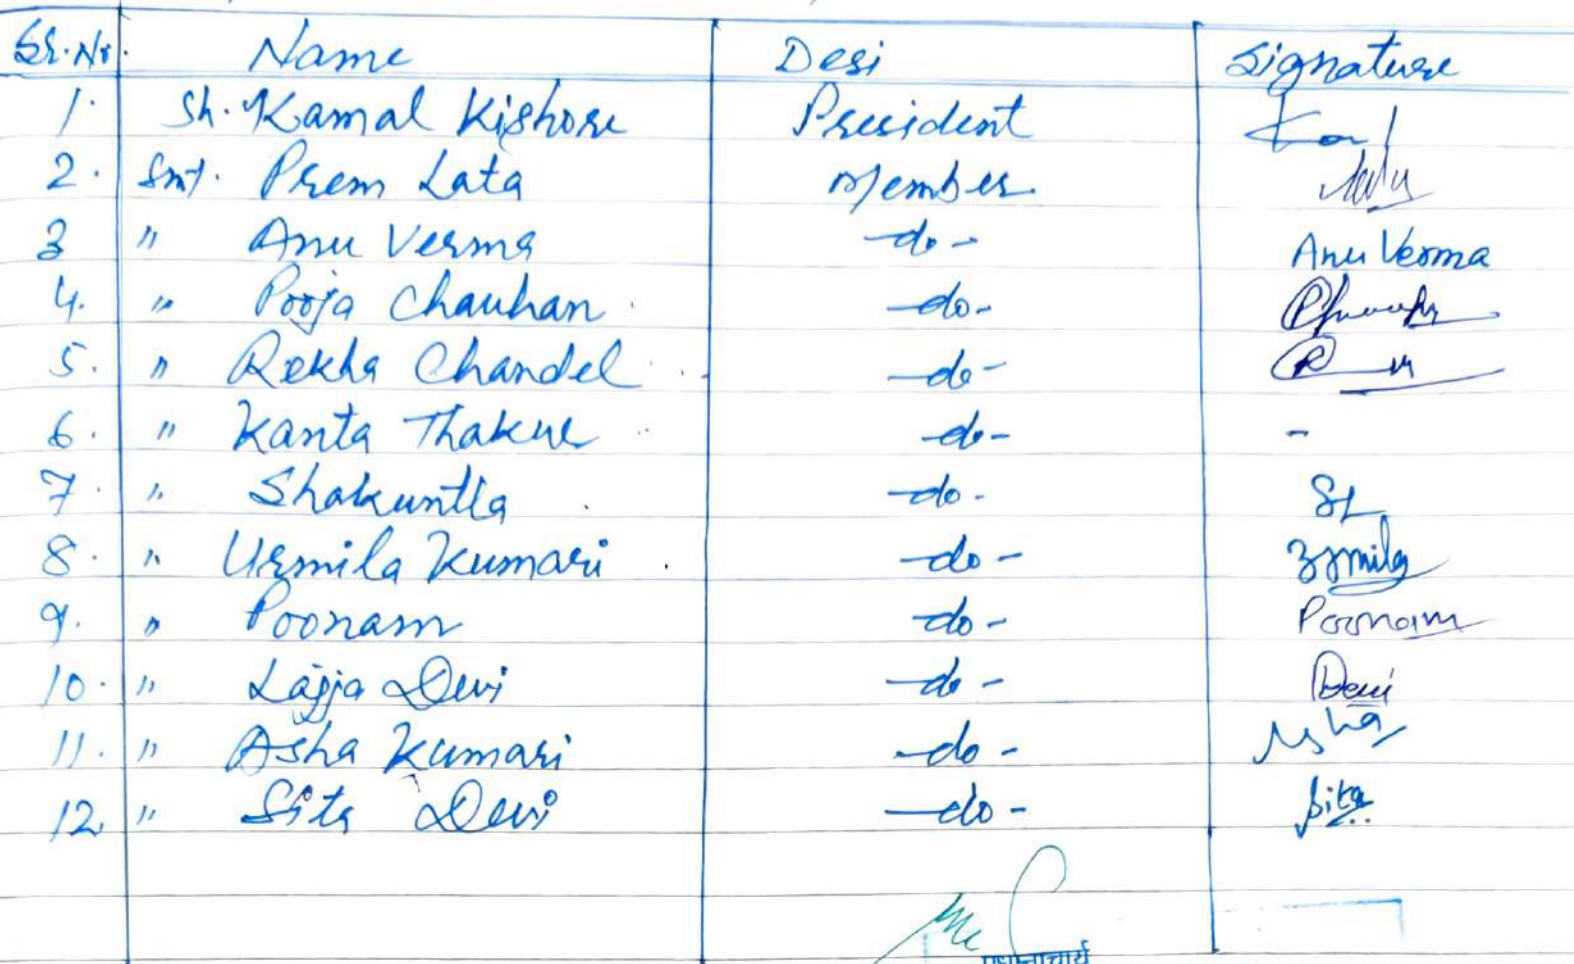 Sr. No. Name Desi Signature
1. Sh. Kamal Kishore President
2. Smt. Prem Lata Member
3 " Anu Verma -do- Anu Verma
4. " Pooja Chauhan -do-
5. " Rekha Chandel -do-
6. " Kanta Thakur -do- -
7. " Shakuntla -do- SL
8. " Urmila Kumari -do- Urmila
9. " Poonam -do- Poonam
10. " Lajja Devi -do- Devi
11. " Asha Kumari -do- Asha
12. " Sita Devi -do- Sita
प्रधानाचार्य